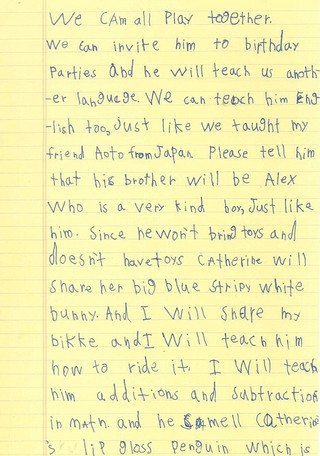 We CAm all Play together.
We can invite him to birthday
Parties and he will teach us anoth-
-er language. We can teach him Eng
-lish too, Just like we taught my
friend Aoto from Japan. Please tell him
that his brother will be Alex
who is a very kind boy, Just like
him. Since he won't bring toys and
doesn't have toys Catherine will
share her big blue stripy white
bunny. And I Will share my
bikke and I Will teach him
how to ride it. I Will teach
him additions and subtraction
in math. and he smell Catherine
's lip gloss Penguin which is